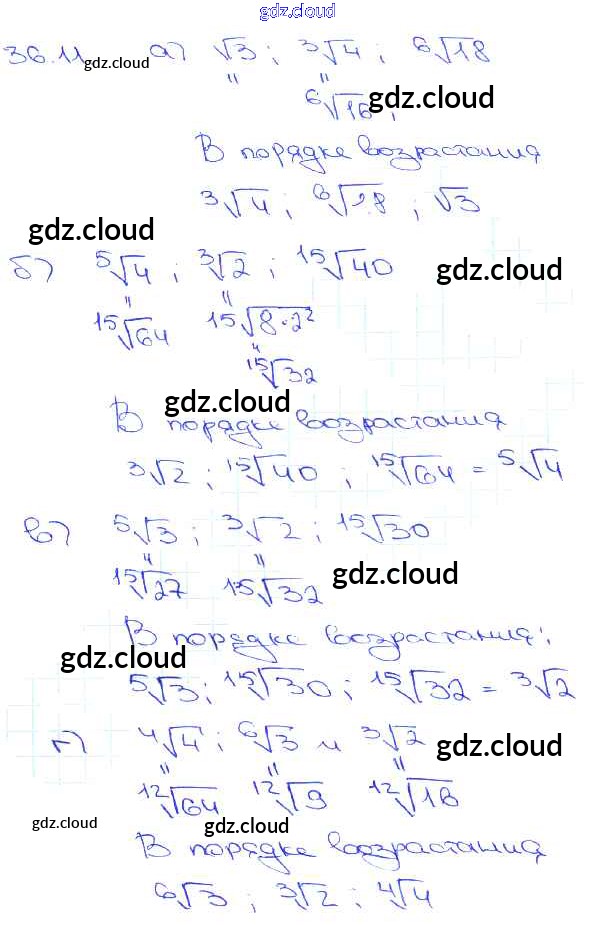 gdz.cloud
36.11 gdz.cloud а) √3 ; ³√4 ; ⁶√18
" "
⁶√16 ; gdz.cloud
В порядке возрастания
³√4 ; ⁶√18 ; √3
gdz.cloud
б) ⁵√4 ; ³√2 ; ¹⁵√40 gdz.cloud
" "
¹⁵√64 ¹⁵√8·2²
"
¹⁵√32
gdz.cloud
В порядке возрастания
³√2 ; ¹⁵√40 ; ¹⁵√64 = ⁵√4
в) ⁵√3 ; ³√2 ; ¹⁵√30
" "
¹⁵√27 ¹⁵√32 gdz.cloud
В порядке возрастания:
gdz.cloud
⁵√3 ; ¹⁵√30 ; ¹⁵√32 = ³√2
г) ⁴√4 ; ⁶√3 и ³√2 gdz.cloud
" " "
¹²√64 ¹²√9 ¹²√16
gdz.cloud gdz.cloud
В порядке возрастания
⁶√3 ; ³√2 ; ⁴√4